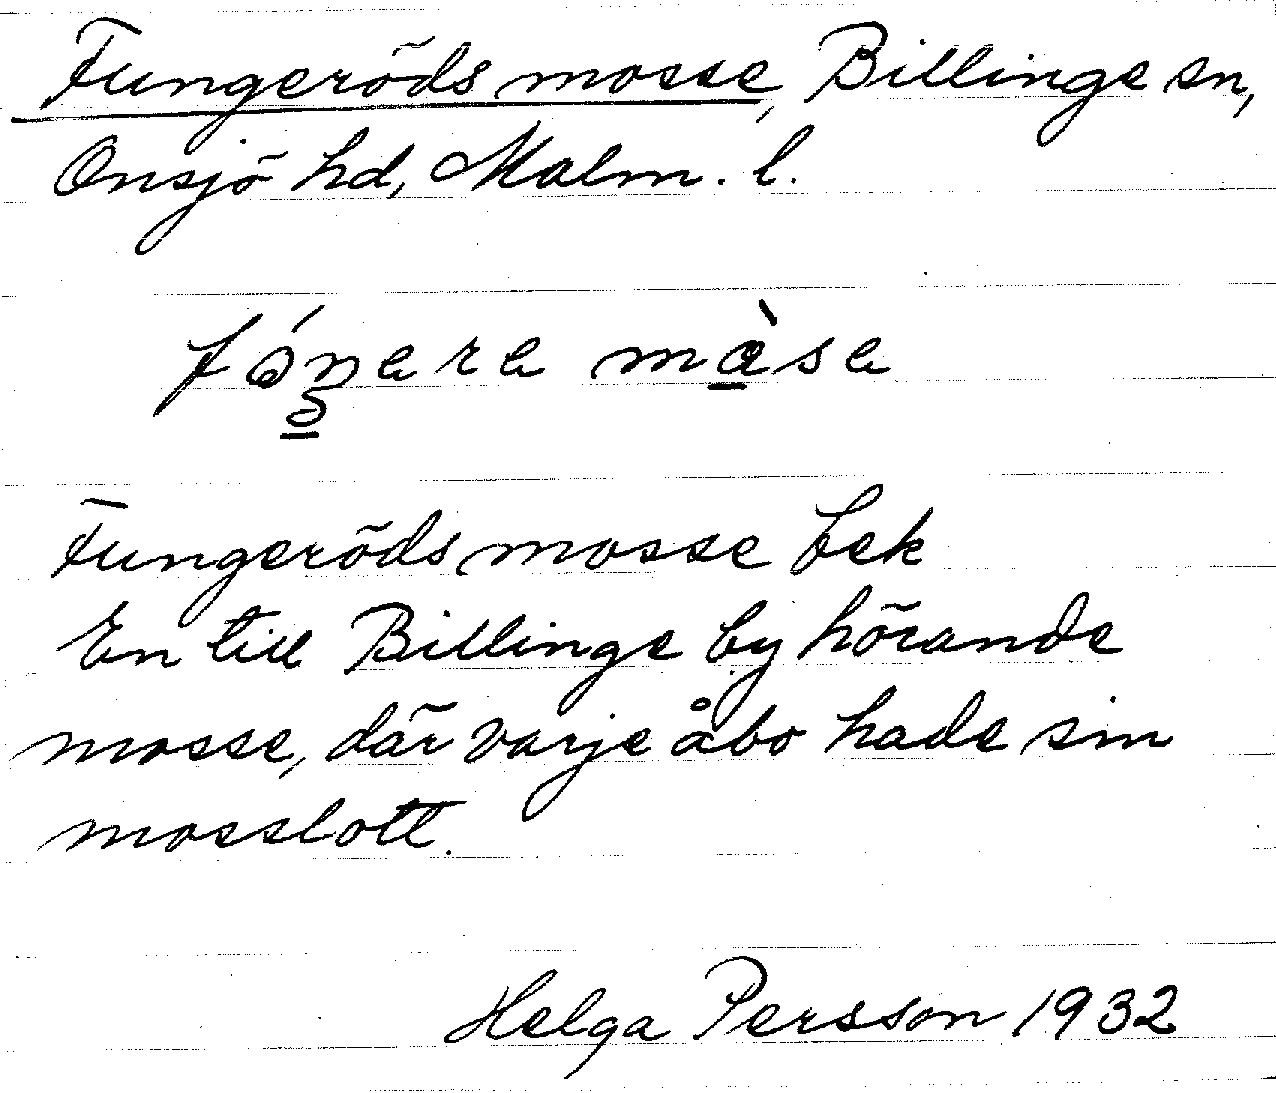 Fungeröds mosse, Billinge sn,
Onsjö hd, Malm. l.
Fungeröds mosse bek
En till Billinge by hörande
mosse, där varje åbo hade sin
mosslott.
Helga Persson 1932